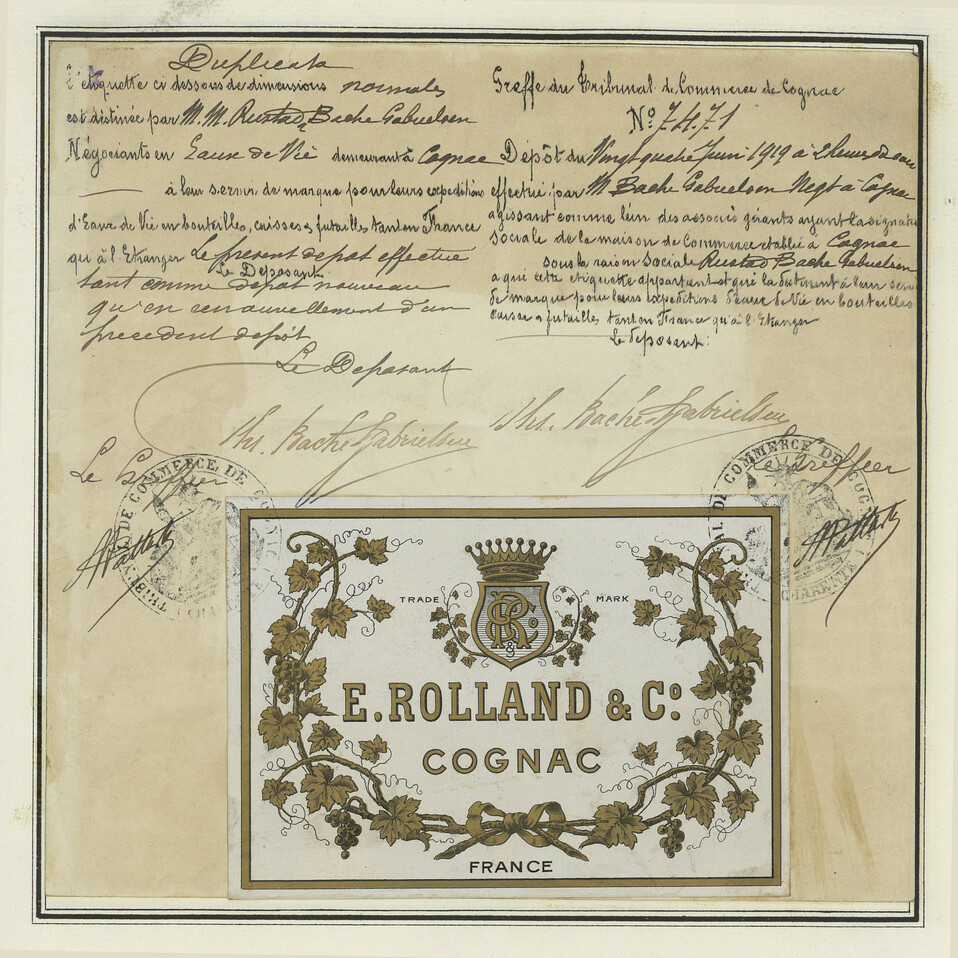 Duplicata
L'étiquette ci dessous de dimensions normales
est destinée par M.M. Rustad, Bache Gabrielsen
Négociants en Eaux de Vie demeurant à Cognac
à leur servir de marque pour leurs expeditions
d'Eaux de Vie en bouteilles, caisses & futailles tant en France
qu'à l'Etranger Le présent depot effectué
Le Deposant
tant comme depot nouveau
qu'en renouvellement d'un
precedent depôt
Le Deposant
Ths. Bache Gabrielsen
Le Greffier
Greffe du Tribunal de Commerce de Cognac
No. 7471
Dépôt du Vingt quatre Juin 1919 à 2 heures du soir
effectué par M Bache Gabrielsen Negt à Cognac
agissant comme l'un des associés gérants ayant la signature
sociale de la maison de Commerce établie à Cognac
sous la raison sociale Rustad Bache Gabrielsen
a qui cette etiquette appartient et qui la destinent à leur servir
de marque pour leurs expeditions d'eaux de Vie en bouteilles
caisses & futailles tant en France qu'à l'Etranger
Le deposant:
Ths. Bache Gabrielsen
Le Greffier
TRIBUNAL DE COMMERCE DE COGNAC
CHARENTE
TRADE MARK
R & Co
E. ROLLAND & Co.
COGNAC
FRANCE